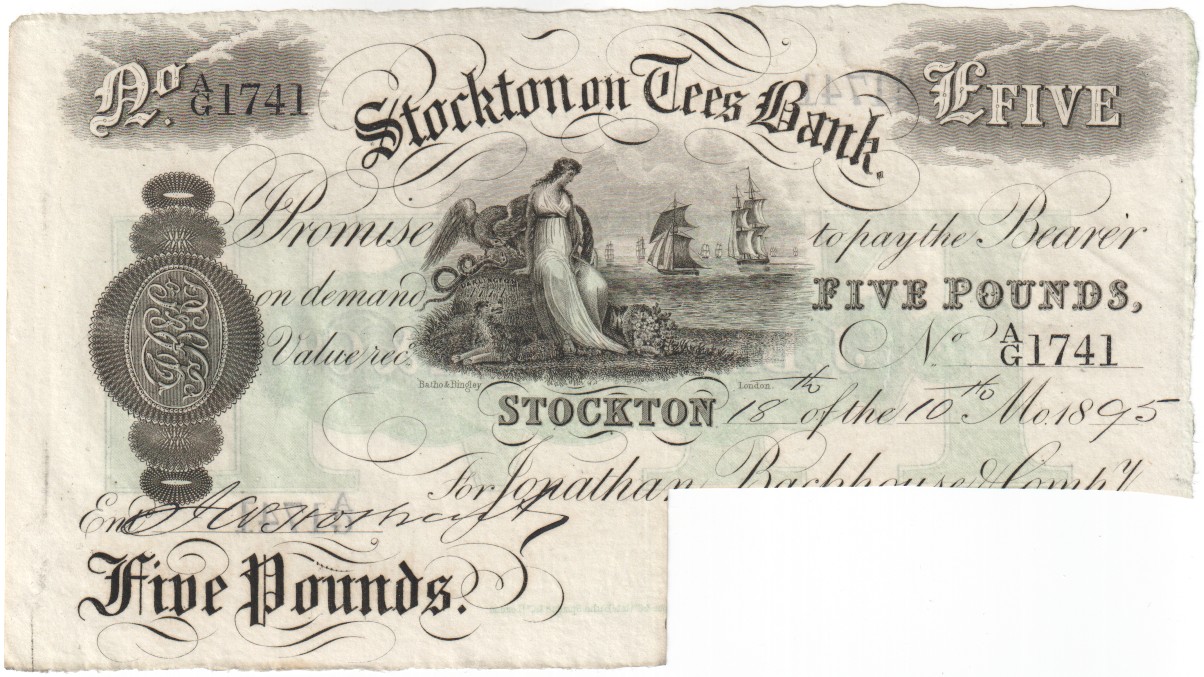 No. A/G 1741
Stockton on Tees Bank.
£FIVE
I Promise to pay the Bearer
on demand, FIVE POUNDS,
Value rec.d No A/G 1741
Batho & Bingley London.
STOCKTON 18th of the 10th Mo. 1895
For Jonathan Backhouse & Compy
Ent.d
Five Pounds.